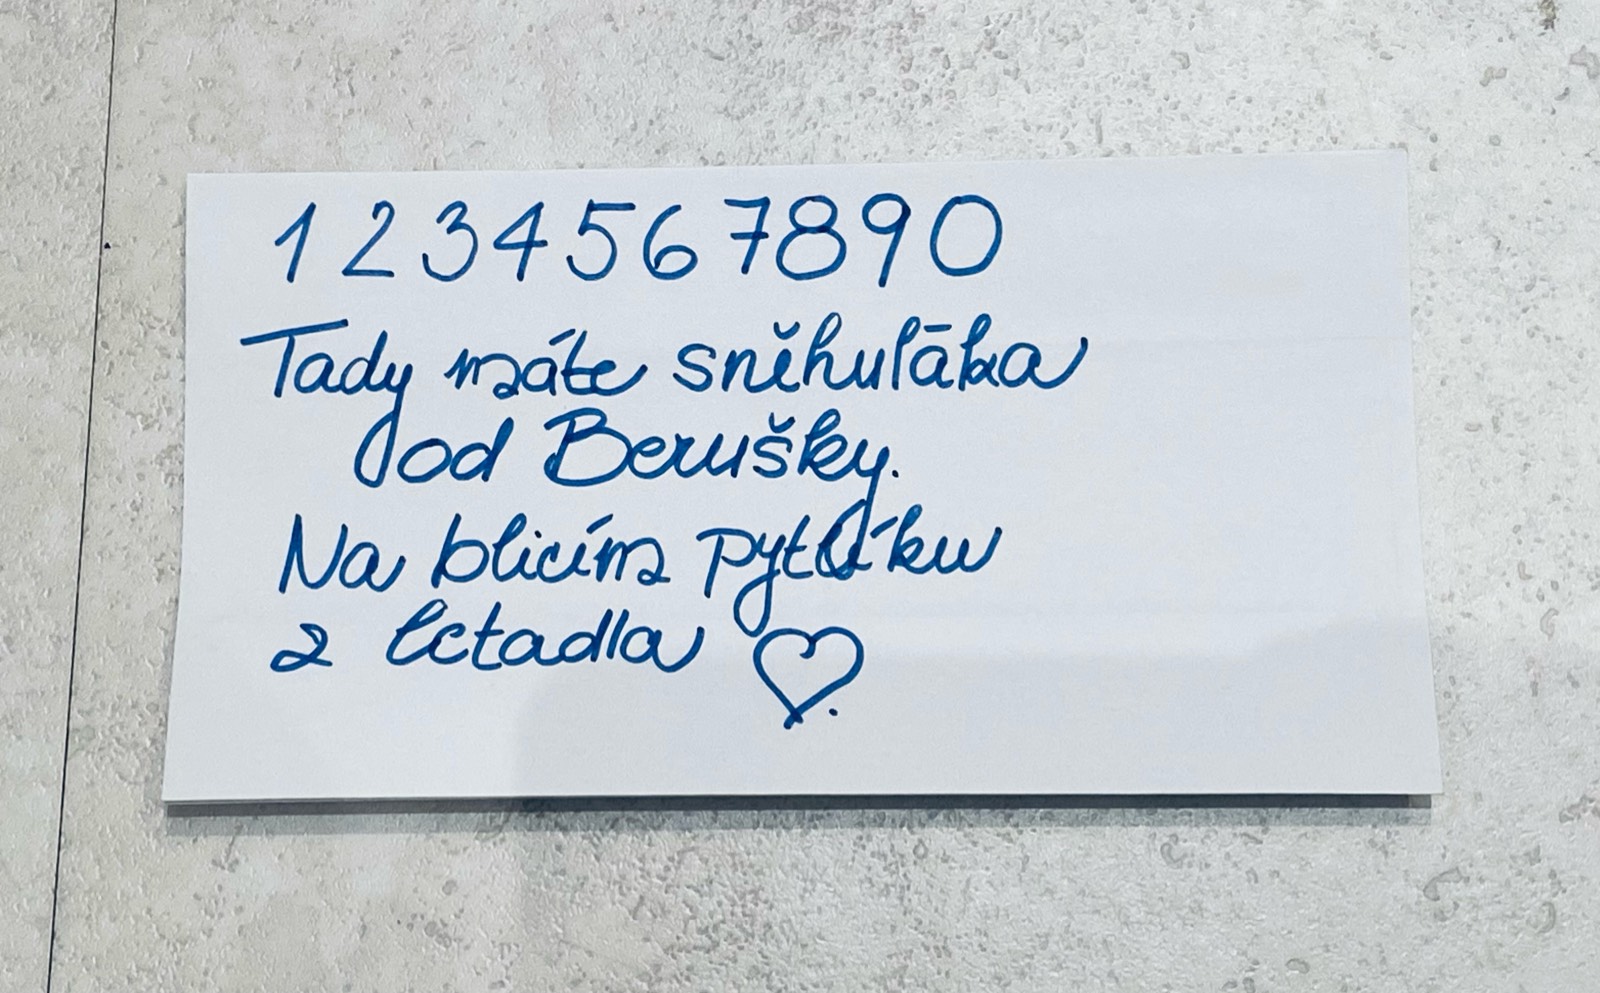 1 2 3 4 5 6 7 8 9 0
Tady máte sněhuláka
od Berušky.
Na blicím pytlíku
z letadla ♡.